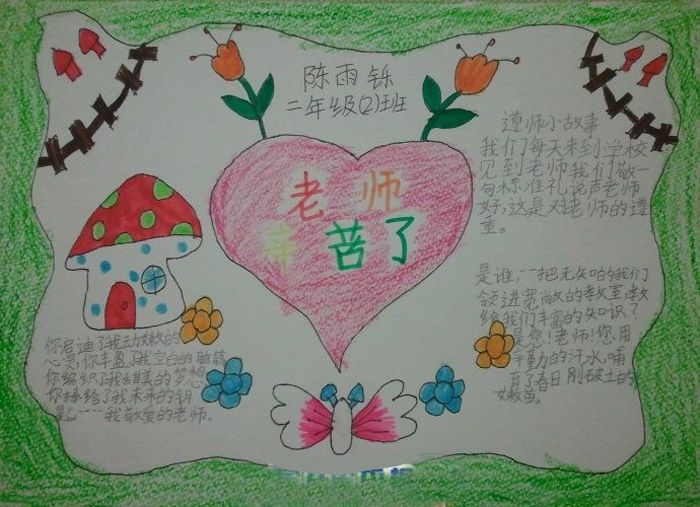 陈雨铄
二年级(2)班
老师
辛苦了
遵师小故事
我们每天来到学校
见到老师我们敬一
句标准礼说声老师
好,这是对老师的遵
重。
是谁,一把无知的我们
领进宽敞的教室,教
给我们丰富的知识?
是您!老师!您用
辛勤的汗水,哺
育了春日刚破土的
嫩苗。
你启迪了我幼嫩的
心灵,你丰盈了我空白的脑
你编织了我甜美的梦想
你
给了我未来的钥
匙……我敬爱的老师。